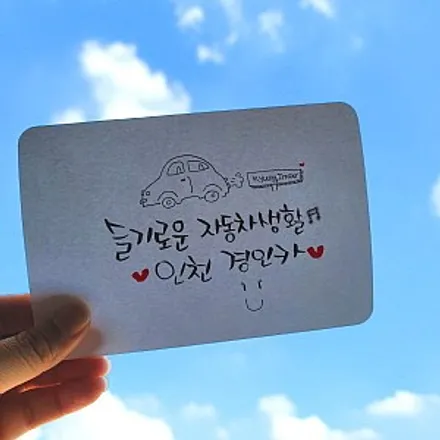 Kyung Incar
슬기로운 자동차생활
인천 경인카